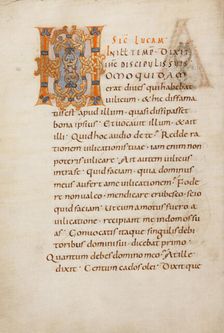 SCĒ LUCAM
IN ILLO TEMP DIXIT
IHC DISCIPULIS SUIS
HOMO QUIDAM
erat dives qui habebat
vilicum & hic diffama
tus est apud illum quasi dissipasset
bona ipsius Et vocavit illum & ait
illi Quid hoc audio de te Redde ra
tionem vilicationis tuae iam enim non
poteris vilicare Ait autem vilicus
intra se Quid faciam quia dominus
meus aufert a me vilicationem Fode
re non valeo mendicare erubesco scio
quid faciam ut cum amotus fuero a
vilicatione recipiant me in domos su
as Convocatis itaque singulis debi
toribus domini sui dicebat primo
Quantum debes domino meo At ille
dixit Centum cados olei Dixitque